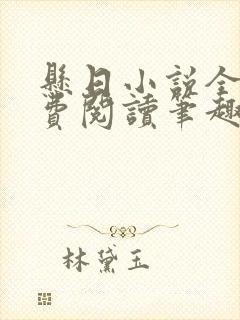 懸日小説全
費閱讀筆趣
林黛玉